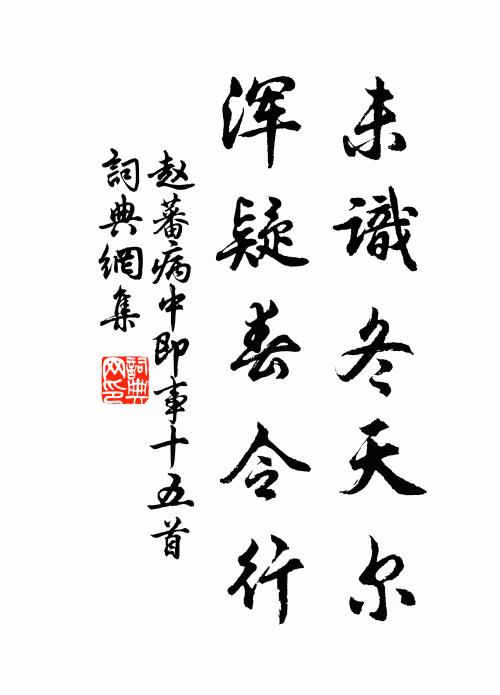 未識冬天尔
浑疑春令行
赵蕃病中即事十五首
詞典網集
詞典網印